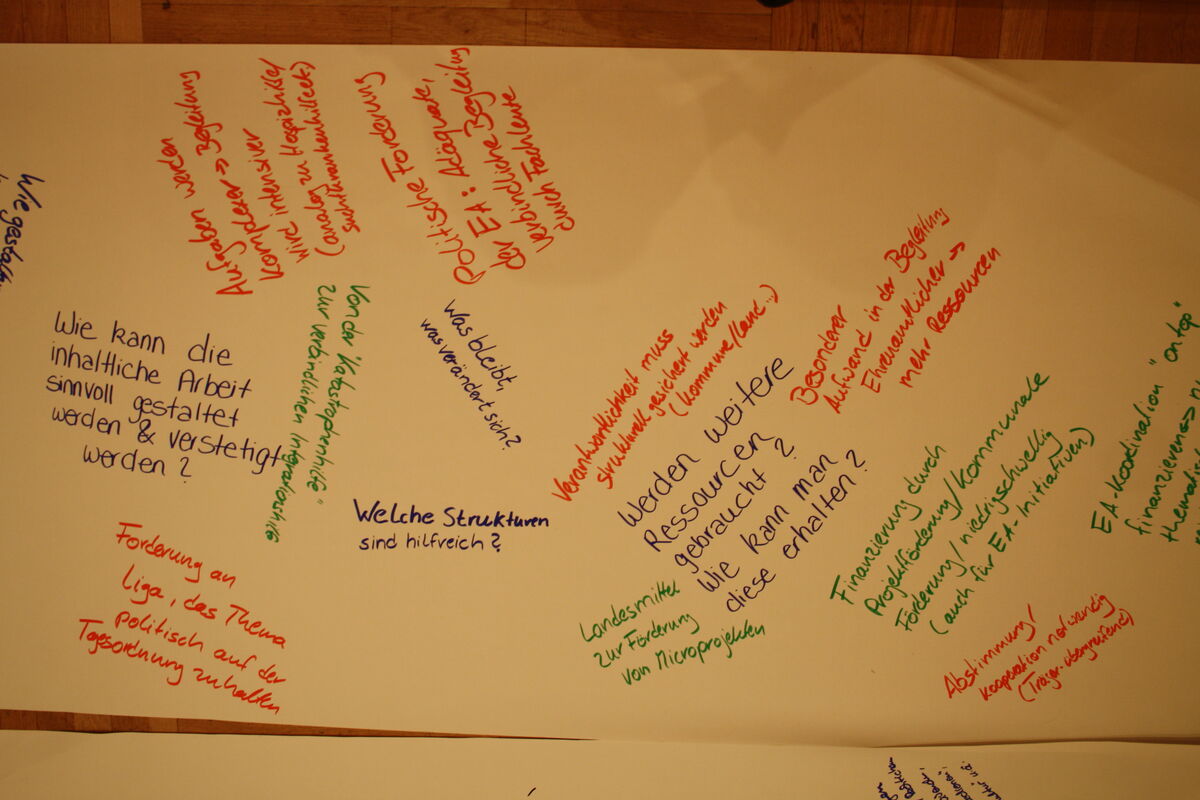 Wie gestalten
Aufgaben werden
komplexer => Begleitung
wird intensiver
(analog zu Hospizhilfe/
suchtkrankenhilfe etc.)
Politische Forderung
der EA: Adäquate,
verbindliche Begleitung
durch Fachleute
Wie kann die
inhaltliche Arbeit
sinnvoll gestaltet
werden & verstetigt
werden?
Von der "Katastrophenhilfe"
zur verbindlichen Integrationshilfe
Was bleibt,
was verändert sich?
Welche Strukturen
sind hilfreich?
Forderung an
Liga, das Thema
politisch auf der
Tagesordnung zu halten
Verantwortlichkeit muss
strukturell gesichert werden
(Kommune/Land...)
Werden weitere
Ressourcen
gebraucht?
Wie kann man
diese erhalten?
Landesmittel
zur Förderung
von Microprojekten
Besonderer
Aufwand in der Begleitung
Ehrenamtlicher =>
mehr Ressourcen
Finanzierung durch
Projektförderung/Kommunale
Förderung/niedrigschwellig
(auch für EA-Initiativen)
Abstimmung/
Kooperation notwendig
(Träger-übergreifend)
EA-Koordination "on top"
finanzieren =>